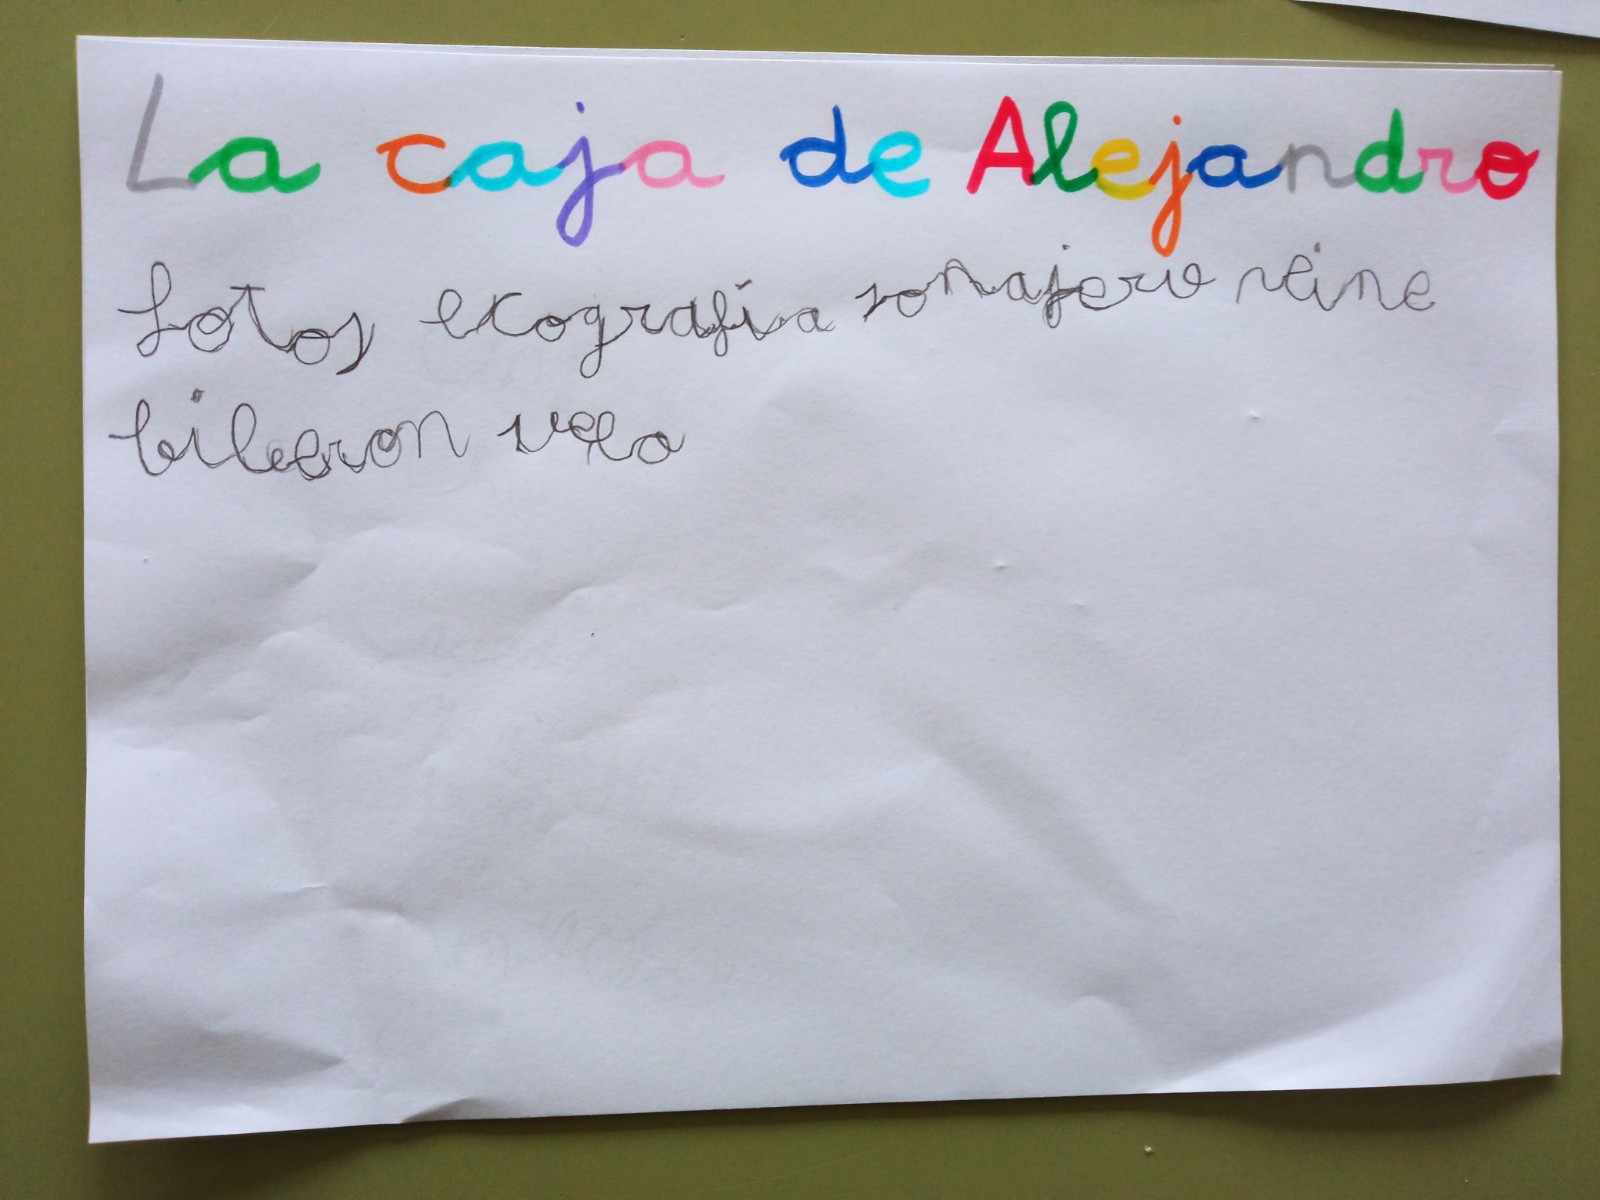 La caja de Alejandro
fotos ecografía sonajero peine
biberon vela